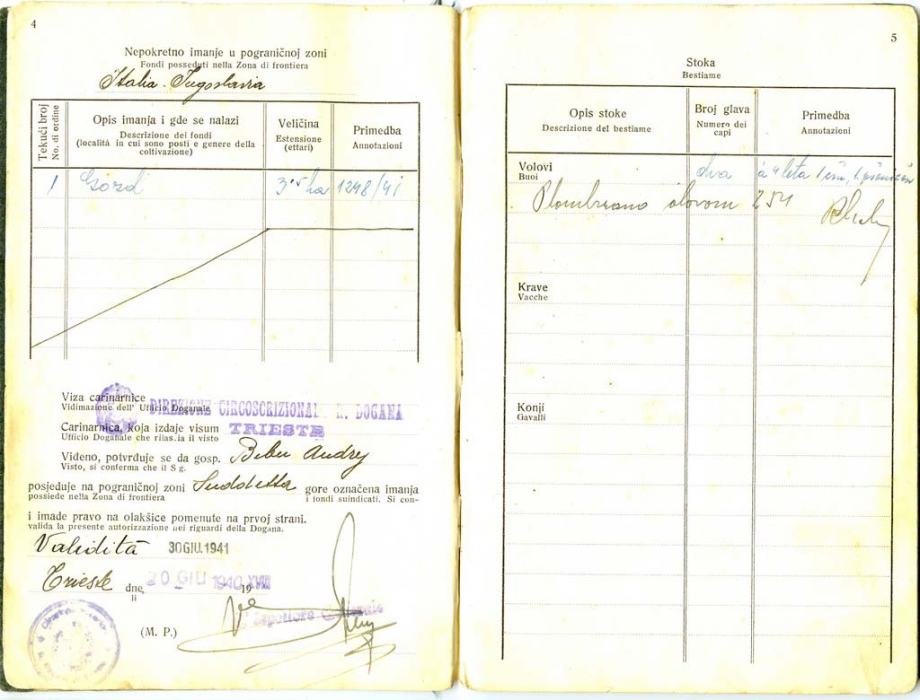 4
Nepokretno imanje u pograničnoj zoni
Fondi posseduti nella Zona di frontiera
Italia - Jugoslavia
Tekući broj
No. di ordine
Opis imanja i gde se nalazi
Descrizione dei fondi
(località in cui sono posti e genere della
coltivazione)
Veličina
Estensione
(ettari)
Primedba
Annotazioni
1 Gozd 3 ha 1248/41
Viza carinarnice
Vidimazione dell' Ufficio Doganale
DIREZIONE CIRCOSCRIZIONALE R. DOGANA
TRIESTE
Carinarnica, koja izdaje visum
Ufficio Doganale che rilascia il visto
Viđeno, potvrđuje se da gosp.
Visto, si conferma che il Sg.
posjeduje na pograničnoj zoni Suddetta gore označena imanja
possiede nella Zona di frontiera i fondi suindicati. Si con-
i imade pravo na olakšice pomenute na prvoj strani.
valida la presente autorizzazione nei riguardi della Dogana.
Validità 30 GIU. 1941
Trieste dne, 20 GIU 1940 XVIII 19
li
(M. P.)
5
Stoka
Bestiame
Opis stoke
Descrizione del bestiame
Broj glava
Numero dei
capi
Primedba
Annotazioni
Volovi dva à 4 leta
Buoi
Plombirano olovom 254
Krave
Vacche
Konji
Gavalli